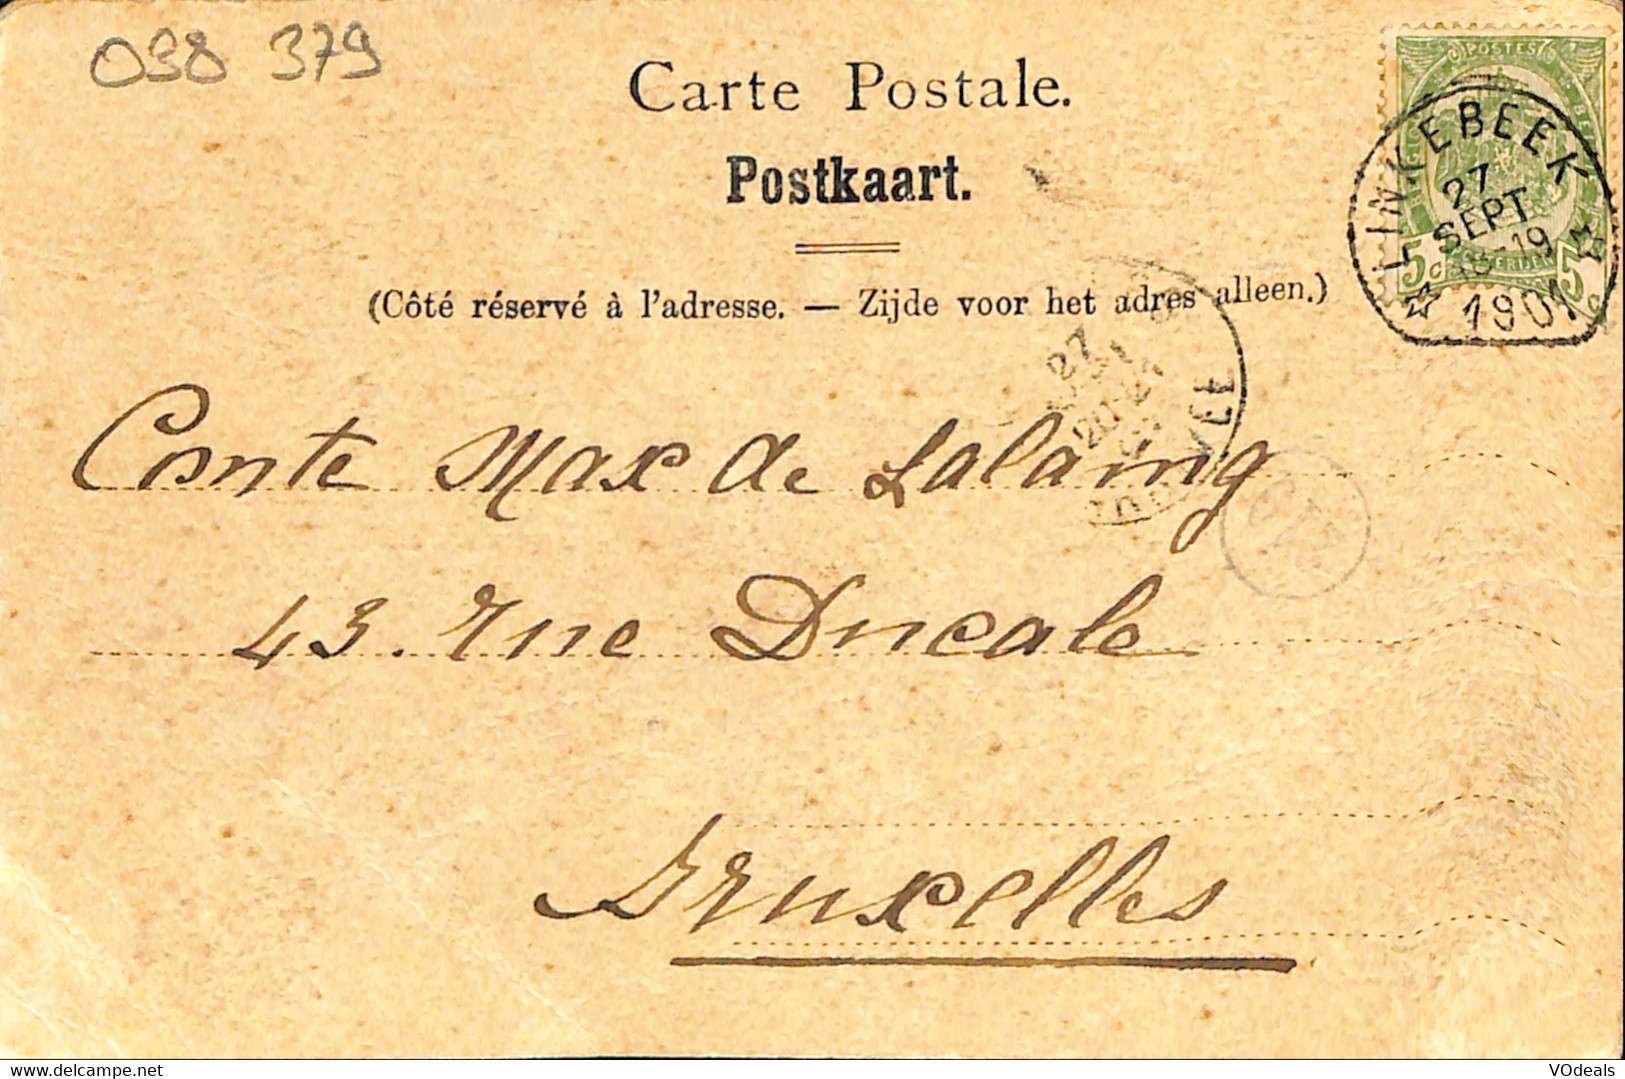 098 379
Carte Postale.
Postkaart.
(Côté réservé à l'adresse. — Zijde voor het adres alleen.)
POSTES
5c 5c
LINKEBEEK
27
SEPT
18-19
1901
27
20-21
Comte Max de Lalaing
43. rue Ducale
Bruxelles
VOdeals